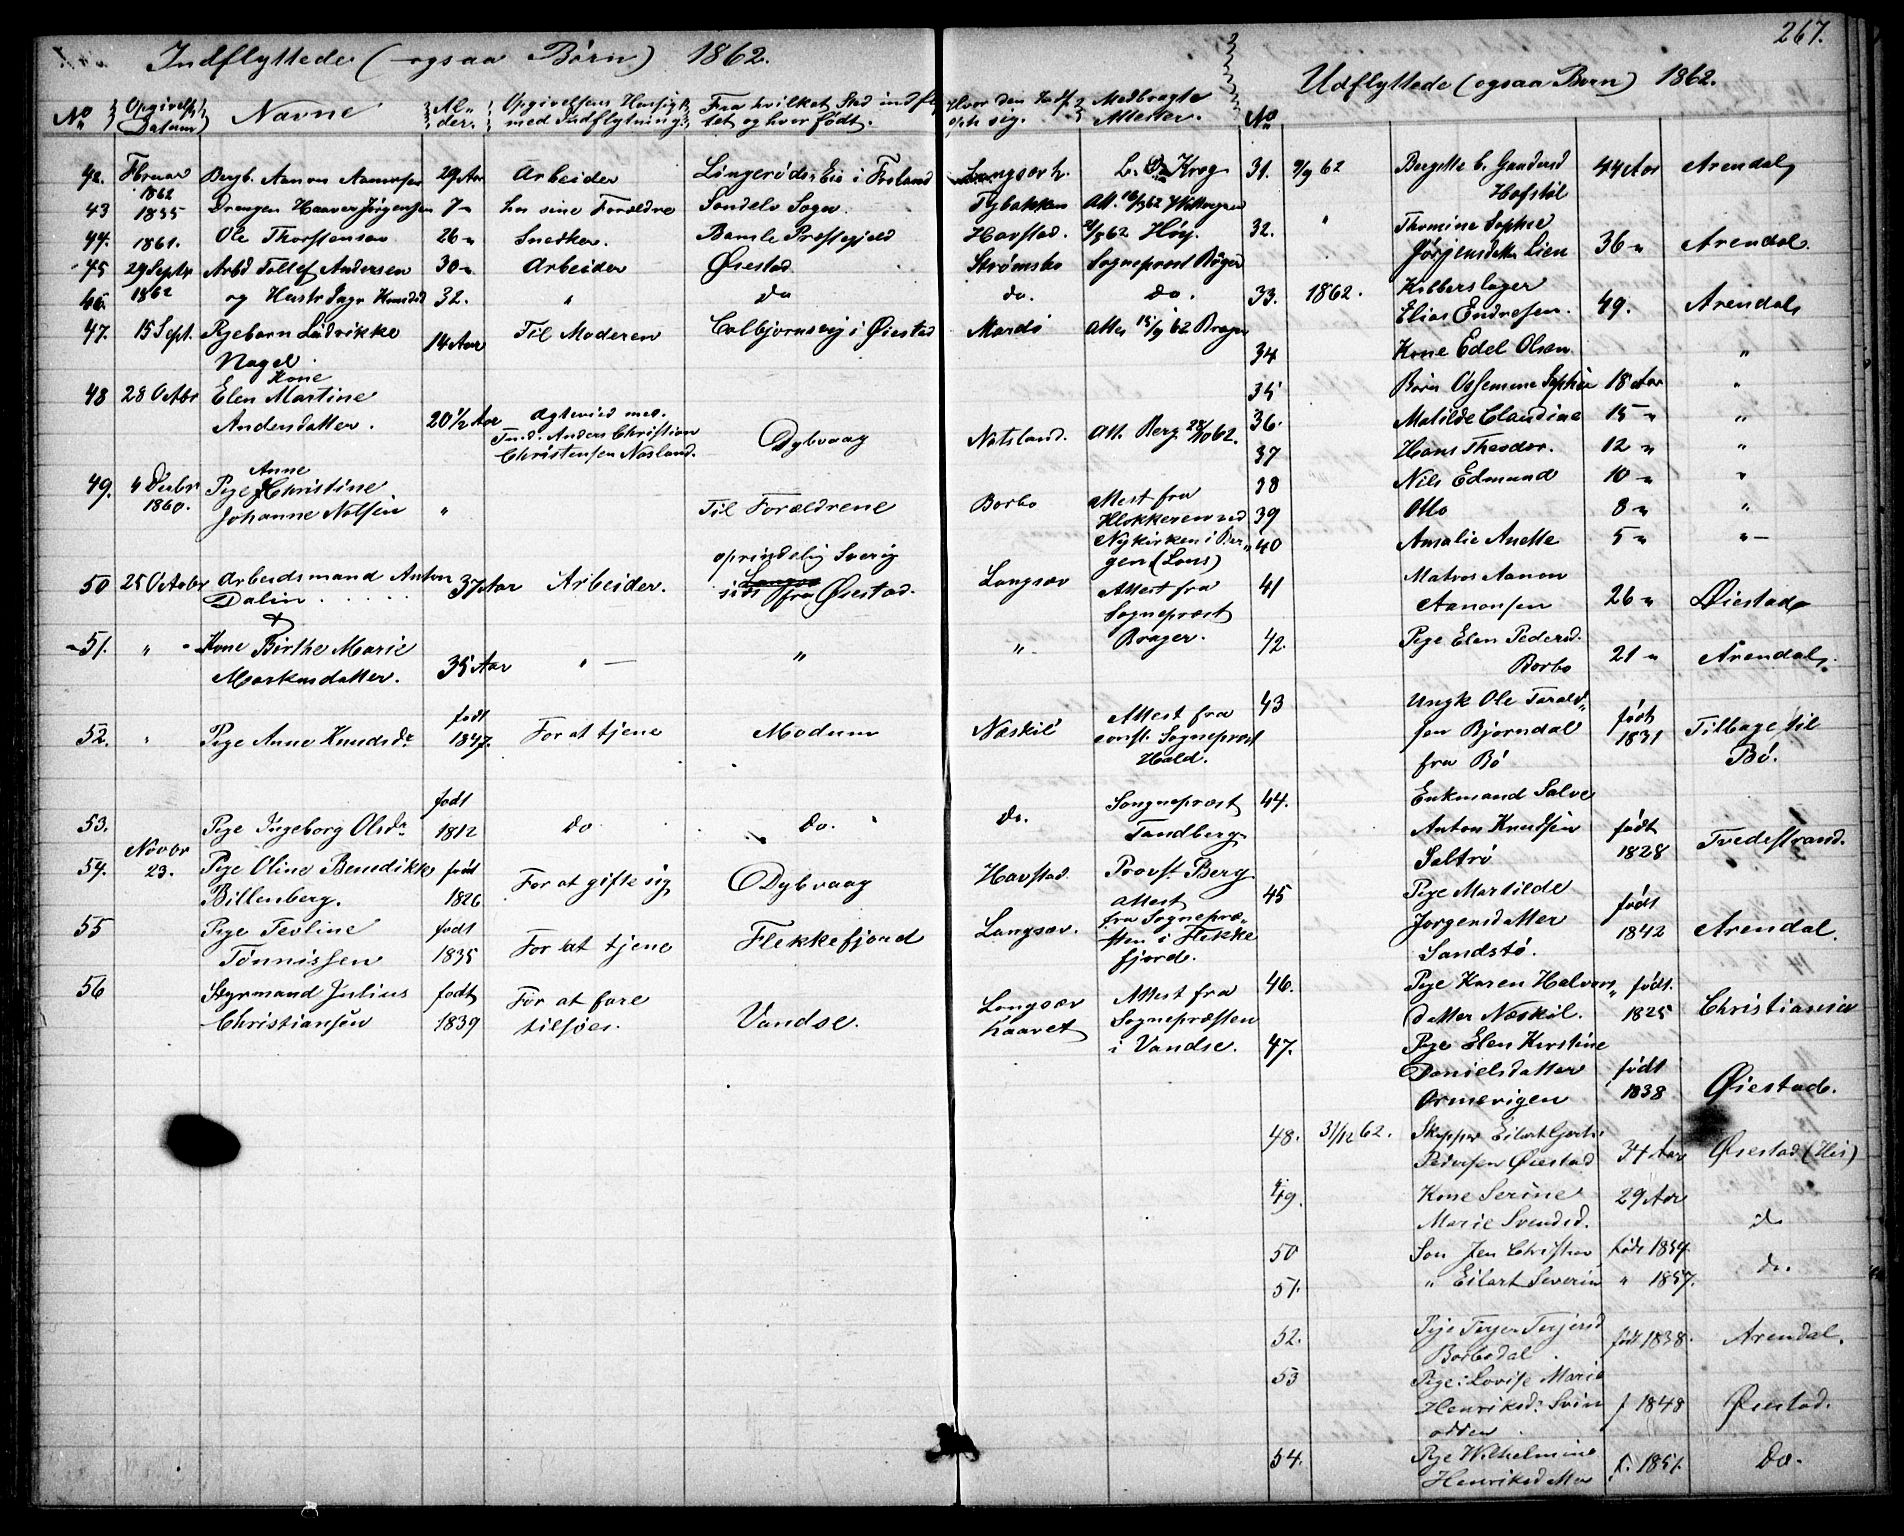 267.
Indflyttede (ogsaa Børn) 1862.
No Opgivelse Datum Navne Alder. Opgivelsens Hensigt med Indflytning. Fra hvilket Sted indflyttet og hvor født. Hvor den Indf. oph. sig. Medbragte Attester.
42. Februar 1862 Aanon 29 Aar Arbeider i Froland Langsævh. Krog
43 1855 Drengen Haaver Jørgensen 7 " hos sine Forældre Søndeløv Sogn Tybakken Att.
44. 1861. Ole Thorstensen 26 " Snedker. Bamle Præstegjeld Havstad. Høy.
45 29 Septr 1862 Arbd Tellef Andersen 30 " Arbeider Øiestad Strømsbo Sogneprest
46. og Hustr Inger Knudsd 32. " do do. do.
47. 15 Sept. Pigebarn Ludvikke Nagel. 14 Aar Til Moderen Colbjørnsvig i Øiestad Mardø Attes 15/9 62
48 28 Octbr Kone Elen Martine Andersdatter. 20 1/2 Aar Ægteviet med Anders Christian Christensen Næsland. Dybvaag Natsland. Att. Berg 28/10 62.
49. 4 Decbr 1860. Pige Anne Christine Johanne Nolsen " Til Forældrene Borbo Attest fra Klokkeren ved Nykirken i Bergen (Lous)
50 25 October Arbeidsmand Anton Dalin. 37 Aar Arbeider. oprindelig Sverig sidst fra Øiestad. Langsæv Attest fra Sogneprest Brager.
51. " Kone Birthe Marie Markusdatter. 35 Aar " — " "
52. " Pige Anne Knudsdr født 1847. For at tjene Modum Næskil Attest fra const. Sogneprest Hald.
53. Pige Ingeborg Olsdr født 1812 do do. do. Songneprest Tandberg
54. Novbr 23. Pige Oline Bendikke Billenberg. født 1826 For at gifte sig Dybvaag Havstad. Provst Berg
55 Pige Tevline Tønnissen født 1835 For at tjene Flekkefjord Langsæv. Attest fra Sognepræsten i Flekkefjord.
56 Styrmand Julius Christiansen født 1839 For at fare tilsøes. Vandse. Langsævhaavet Attest fra Sognepræsten i Vandse.
Udflyttede (ogsaa Børn) 1862.
No
31. 9/9 62 Bergitte C. Gundersd Hofstøl 44 Aar Arendal
32. " Thomine Sophie Jørgensdatter Lien 36 " Arendal.
33. 1862. Kobberslager Elias Endresen. 49. Arendal
34 Kone Edel Olsen "
35 Børn Sophie 18 Aar "
36. Matilde Claudine 15 " "
37 Hans Theodor. 12 " "
38 Nils Edmund 10 " "
39 Otto 8 " "
40 Amalie Anette 5 " " —
41 Matros Aanon Aanonsen 26 " Øiestad
42. Pige Elen Pedersd. Borbo 21 " Arendal.
43 Ungk Ole Taraldsen Bjørndal fra Bø født 1831 Tilbage til Bø.
44. Enkmand Salve Anton Knudsen Saltrø født 1828 Tvedestrand.
45 Pige Martilde Jorgensdatter Sandstø. født 1842 Arendal.
46. Pige Karen Halvorsdatter Næskil. født 1825 Christiania
47. Pige Elen Kirstine Danielsdatter født 1838 Øiestad.
48. 31/12 62. Skipper Eilert Pedersen Øiestad 34 Aar Øiestad (His)
49. Kone Serine Marie Svendsd. 29 Aar do
50 Søn Jen Christian født 1854. do.
51. " Eilert Severin " 1857.
52. Pige Terjersd Borbodal. født 1838. Arendal.
53 Pige: Lovise Marie Henriksd: Svinodden f 1848 Øiestad.
54. Pige Wilhelmine Henriksdatter f. 1851. Do.